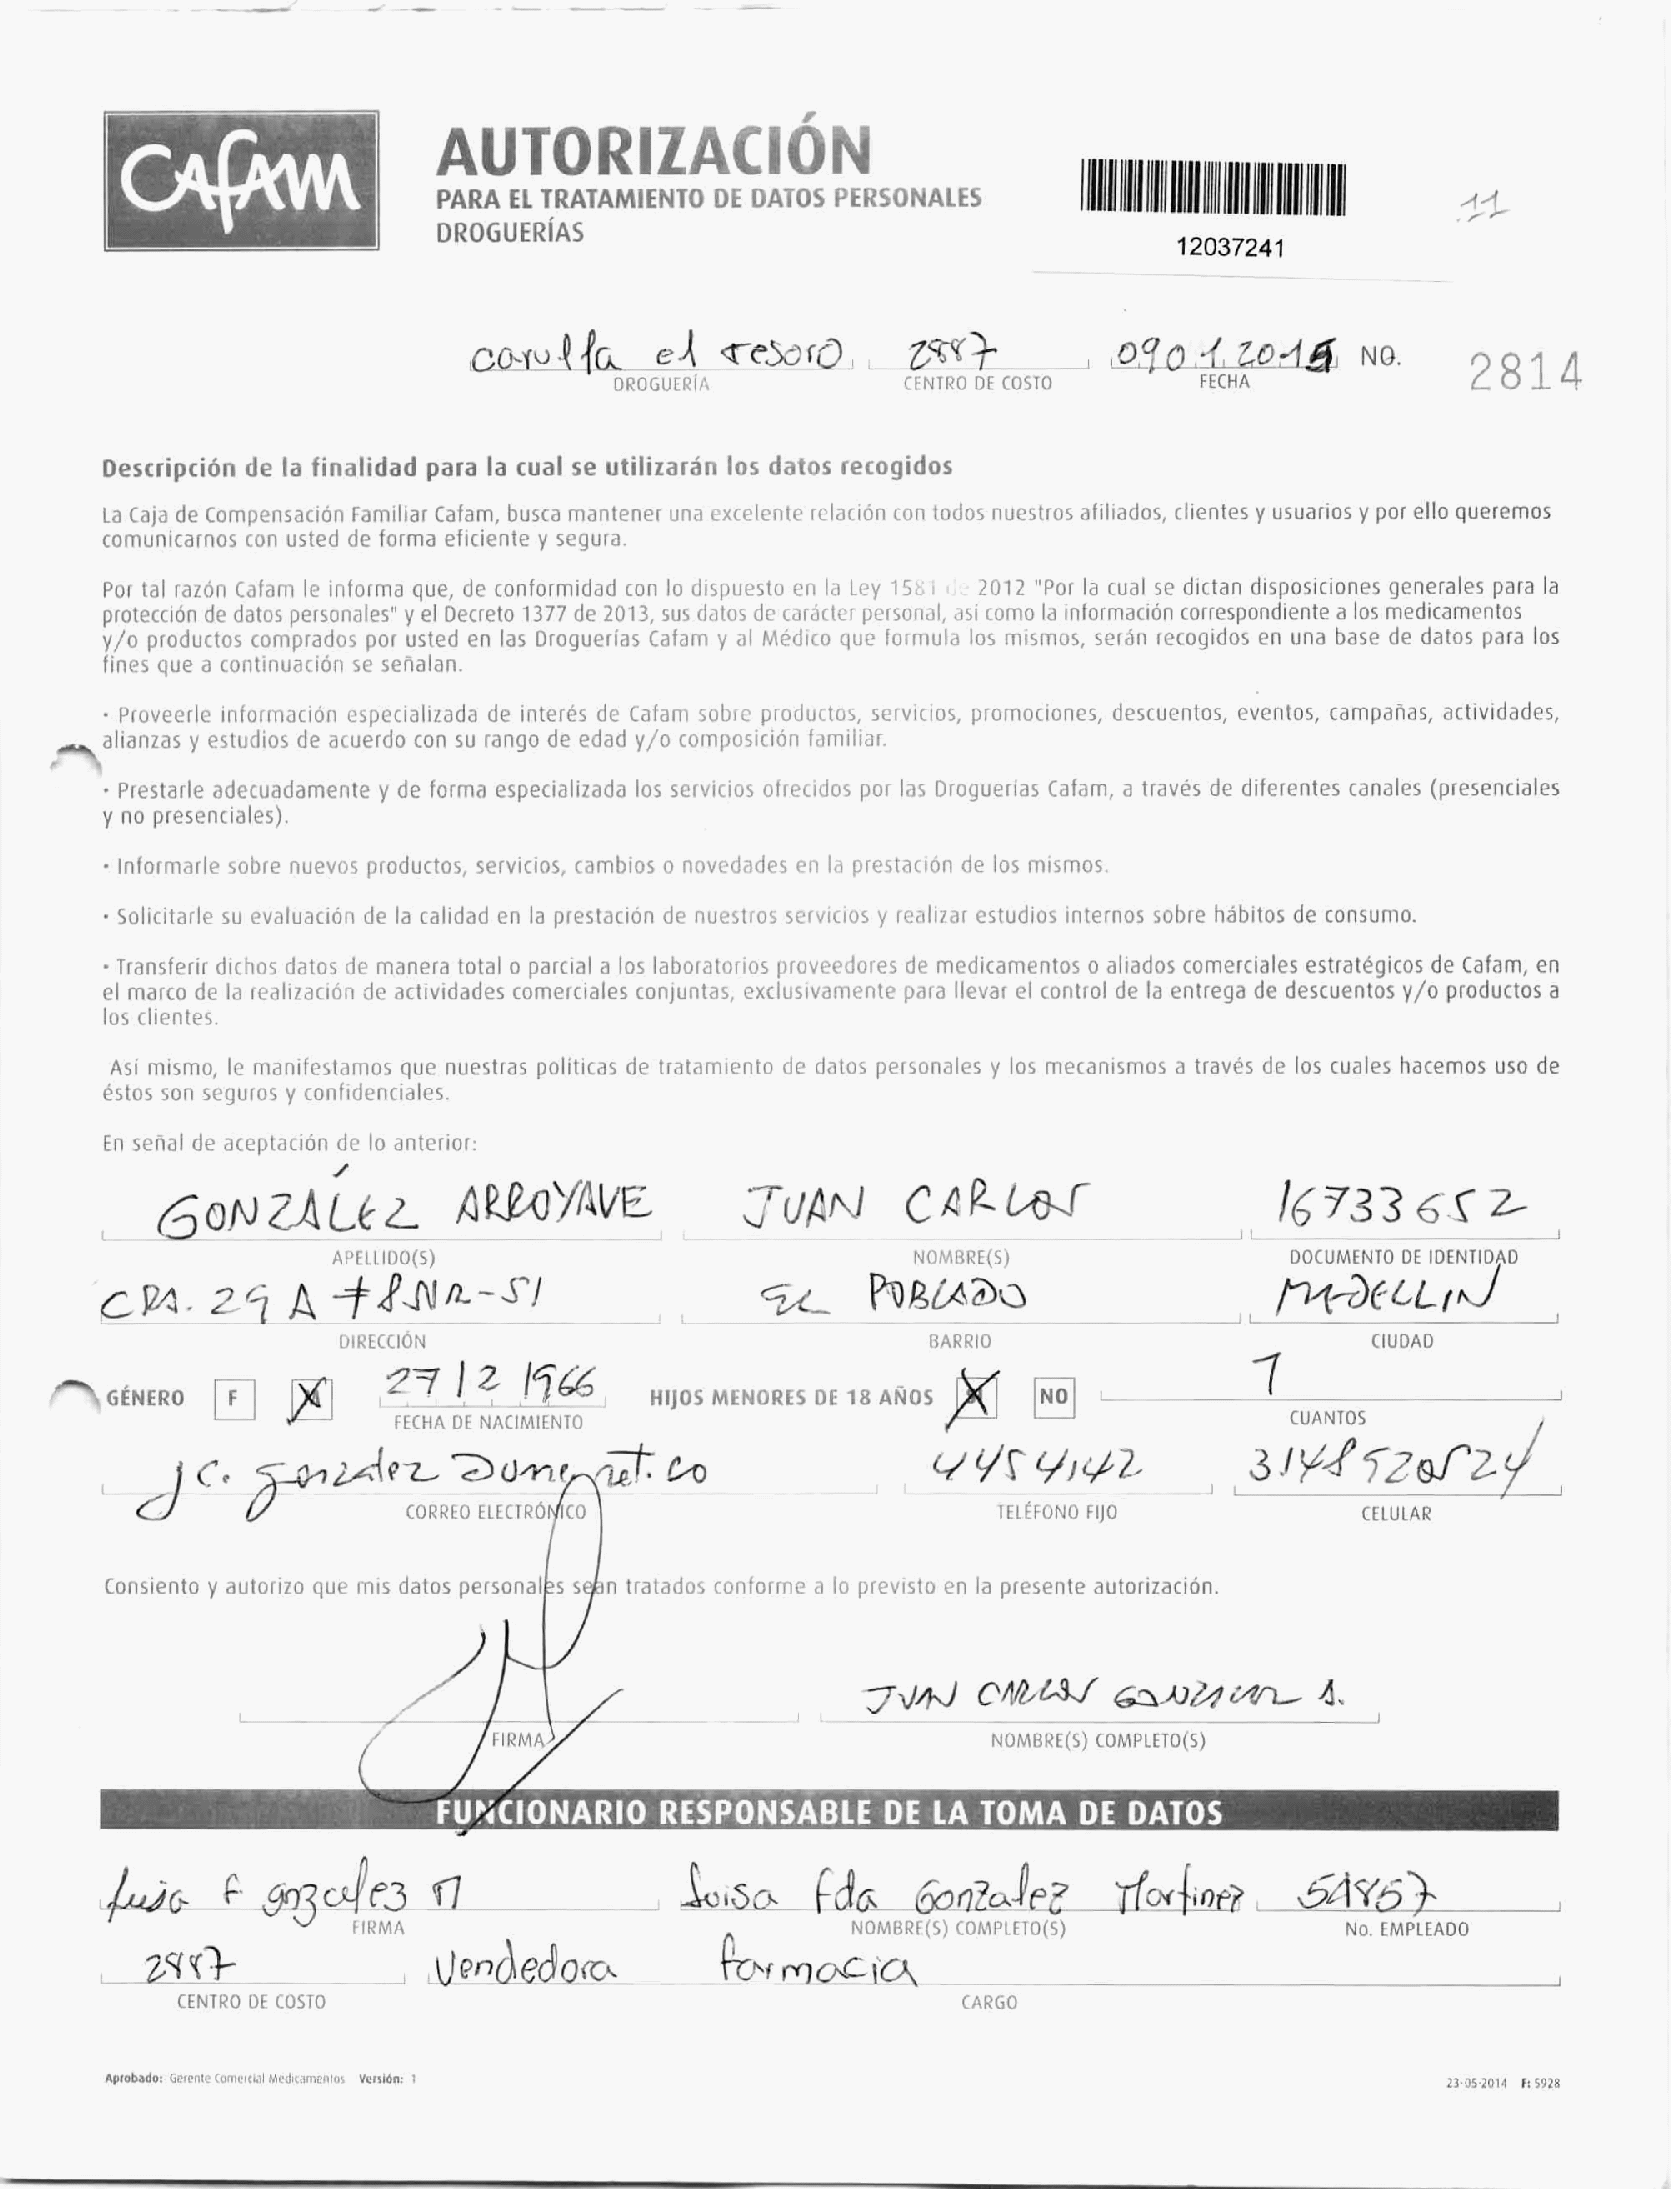 CAFAM
AUTORIZACIÓN
PARA EL TRATAMIENTO DE DATOS PERSONALES
DROGUERÍAS
12037241
11
carulla el tesoro 2887 09012015 NO. 2814
DROGUERÍA CENTRO DE COSTO FECHA
Descripción de la finalidad para la cual se utilizarán los datos recogidos
La Caja de Compensación Familiar Cafam, busca mantener una excelente relación con todos nuestros afiliados, clientes y usuarios y por ello queremos
comunicarnos con usted de forma eficiente y segura.
Por tal razón Cafam le informa que, de conformidad con lo dispuesto en la Ley 1581 de 2012 "Por la cual se dictan disposiciones generales para la
protección de datos personales" y el Decreto 1377 de 2013, sus datos de carácter personal, así como la información correspondiente a los medicamentos
y/o productos comprados por usted en las Droguerías Cafam y al Médico que formula los mismos, serán recogidos en una base de datos para los
fines que a continuación se señalan.
· Proveerle información especializada de interés de Cafam sobre productos, servicios, promociones, descuentos, eventos, campañas, actividades,
alianzas y estudios de acuerdo con su rango de edad y/o composición familiar.
· Prestarle adecuadamente y de forma especializada los servicios ofrecidos por las Droguerías Cafam, a través de diferentes canales (presenciales
y no presenciales).
· Informarle sobre nuevos productos, servicios, cambios o novedades en la prestación de los mismos.
· Solicitarle su evaluación de la calidad en la prestación de nuestros servicios y realizar estudios internos sobre hábitos de consumo.
· Transferir dichos datos de manera total o parcial a los laboratorios proveedores de medicamentos o aliados comerciales estratégicos de Cafam, en
el marco de la realización de actividades comerciales conjuntas, exclusivamente para llevar el control de la entrega de descuentos y/o productos a
los clientes.
Así mismo, le manifestamos que nuestras políticas de tratamiento de datos personales y los mecanismos a través de los cuales hacemos uso de
éstos son seguros y confidenciales.
En señal de aceptación de lo anterior:
GONZÁLEZ ARROYAVE JUAN CARLOS 16733652
APELLIDO(S) NOMBRE(S) DOCUMENTO DE IDENTIDAD
CRA. 29 A EL POBLADO MEDELLIN
DIRECCIÓN BARRIO CIUDAD
GÉNERO F X 27 12 1966 HIJOS MENORES DE 18 AÑOS X NO 1
FECHA DE NACIMIENTO CUANTOS
jc.gonzalez 4454142 3148520524
CORREO ELECTRÓNICO TELÉFONO FIJO CELULAR
Consiento y autorizo que mis datos personales sean tratados conforme a lo previsto en la presente autorización.
JUAN CARLOS GONZALEZ A.
FIRMA NOMBRE(S) COMPLETO(S)
FUNCIONARIO RESPONSABLE DE LA TOMA DE DATOS
Luisa F gonzalez M Luisa Fda Gonzalez Martinez 51857
FIRMA NOMBRE(S) COMPLETO(S) No. EMPLEADO
2887 Vendedora farmacia
CENTRO DE COSTO CARGO
Aprobado: Gerente Comercial Medicamentos Versión: 1
23-05-2014 F: 5928